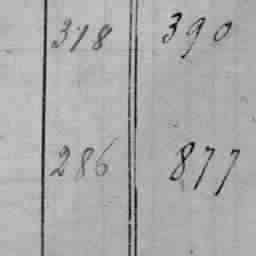 318 390
286 877